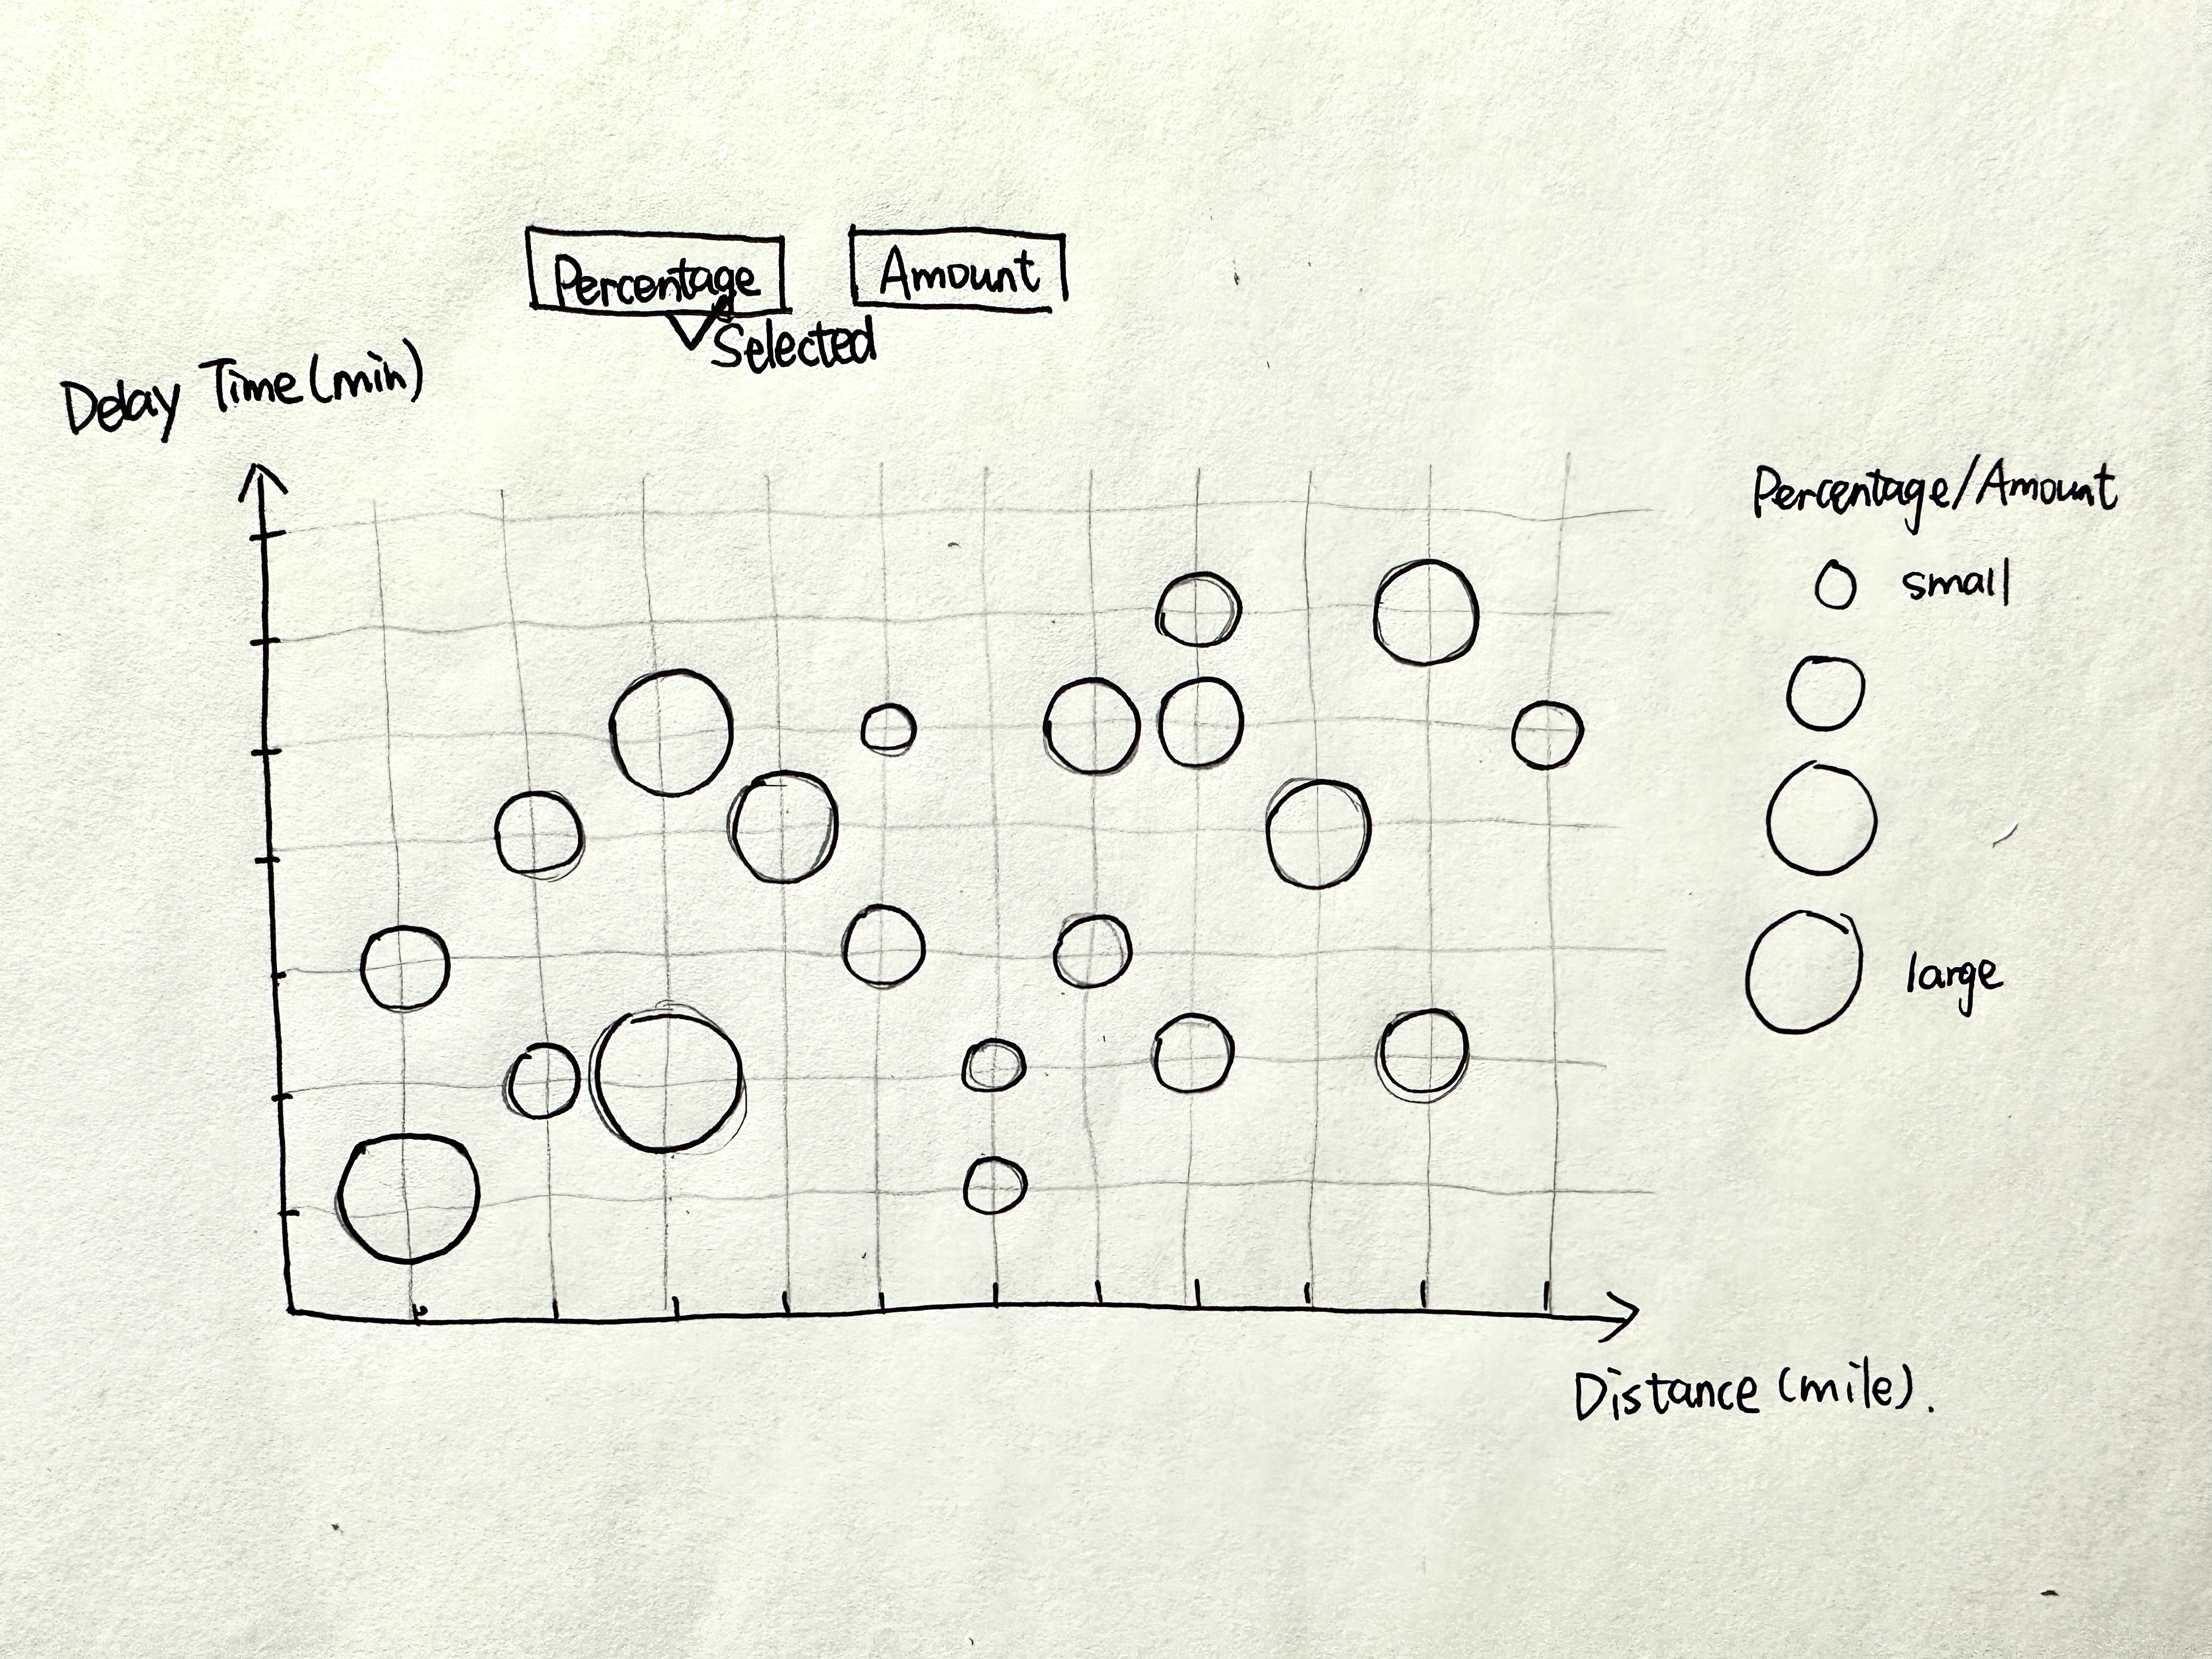 Percentage
Amount
Selected
Delay Time (min)
Percentage/Amount
small
large
Distance (mile).